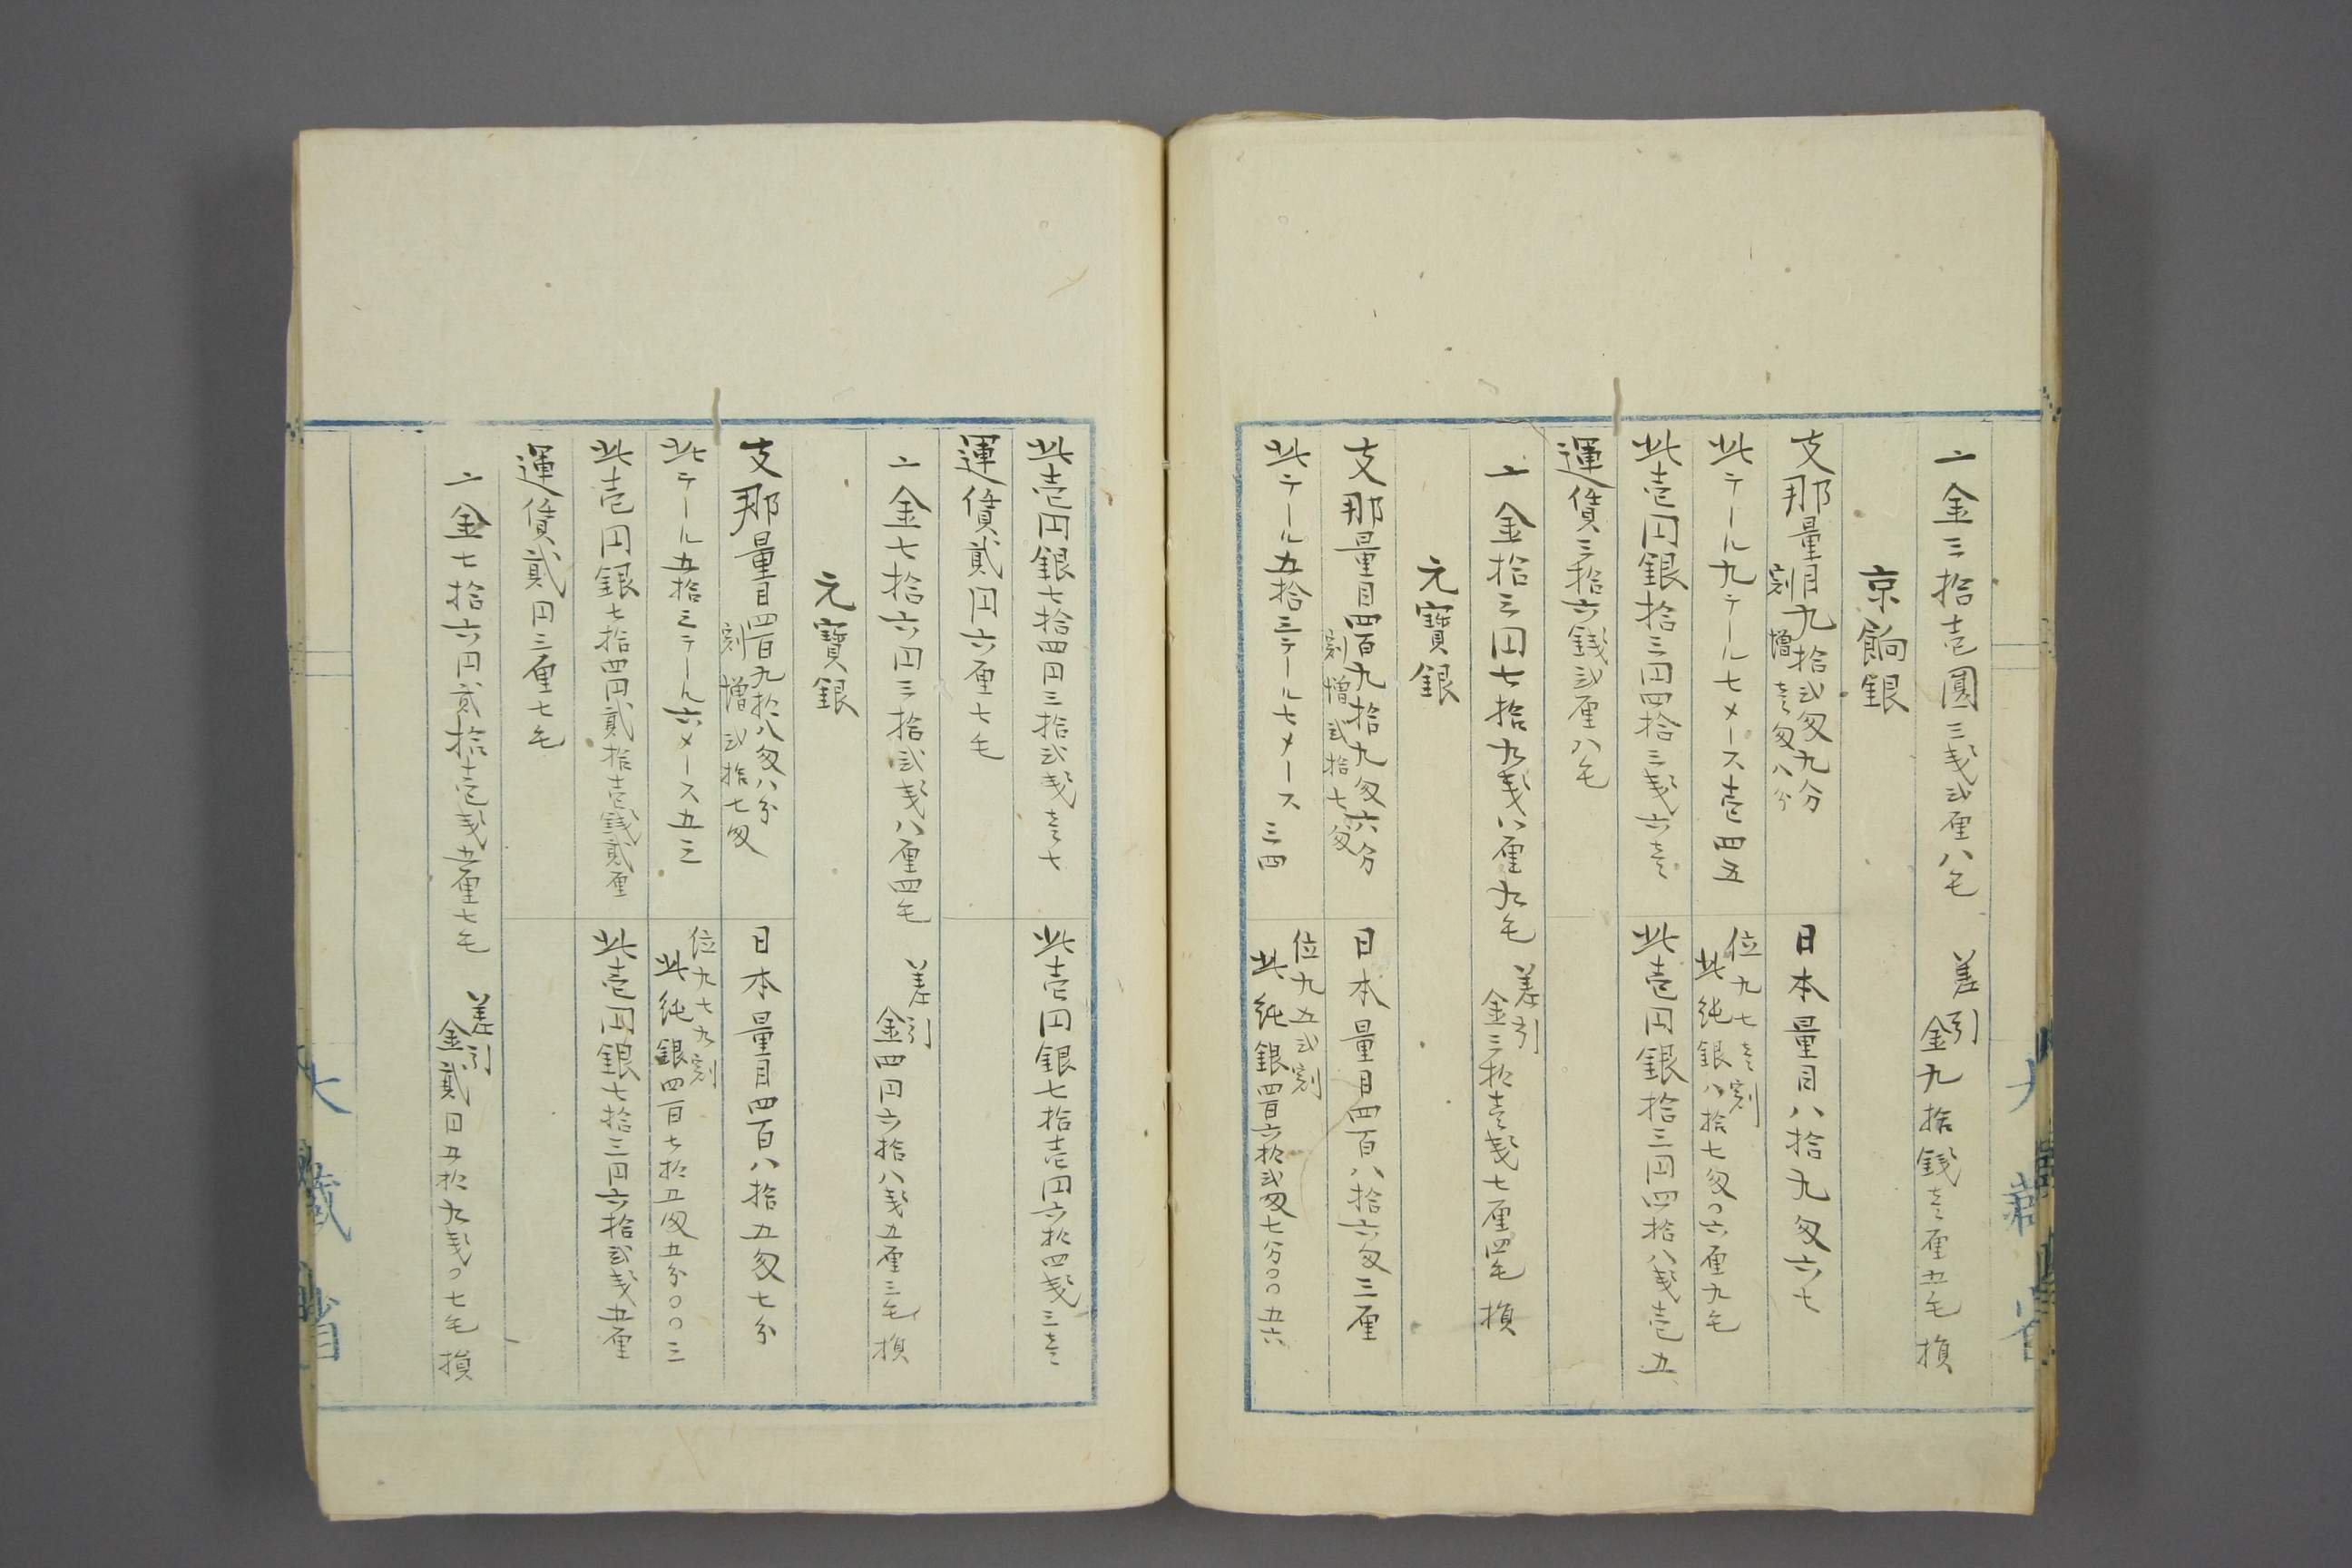 〆金三拾壱圓三戔弐厘八毛　差引金九拾錢壱厘五毛 損
京餉銀
支那量目九拾弐匁九分　日本量目八拾九匁六七
割増壱匁八分
此テール九テール七メース壱四五　位九七壱割
此純銀八拾七匁〇六厘九毛
此壱円銀拾三円四拾三戔六壱　此壱円銀拾三円四拾八戔壱五
運賃三拾六錢弐厘八毛
〆金拾三円七拾九戔八厘九毛　差引金三拾壱戔七厘四毛 損
元寶銀
支那量目四百九拾九匁六分　日本量目四百八拾六匁三厘
割増弐拾七匁
此テール五拾三テール七メース三四　位九五弐割
此純銀四百六拾弐匁七分〇〇五六
此壱円銀七拾四円三拾弐戔壱七　此壱円銀七拾壱円六拾四戔三壱
運賃貳円六厘七毛
〆金七拾六円三拾弐戔八厘四毛　差引金四円六拾八戔五厘三毛 損
元寶銀
支那量目四百九拾八匁八分　日本量目四百八拾五匁七分
割増弐拾七匁
此テール五拾三テール六メース五三　位九七九割
此純銀四百七拾五匁五分〇〇三
此壱円銀七拾四円貳拾壱錢貳厘　此壱円銀七拾三円六拾弐戔五厘
運賃貳円三厘七毛
〆金七拾六円貳拾壱戔五厘七毛　差引金貳円五拾九戔〇七毛 損
大藏省